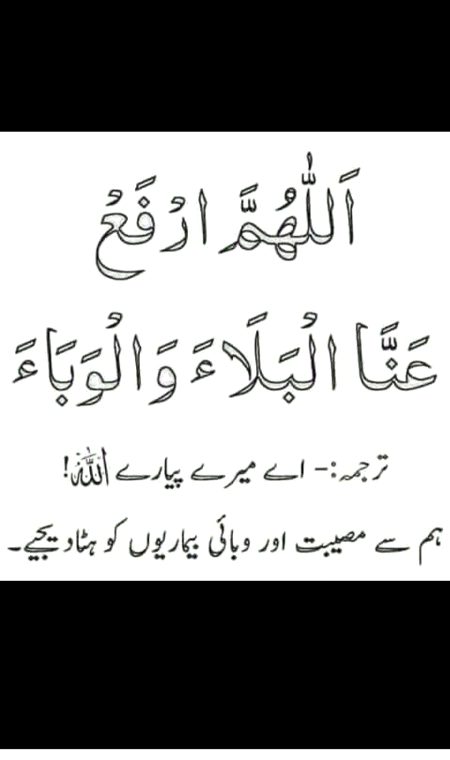 اَللّٰهُمَّ ارْفَعْ
عَنَّا الْبَلَاءَ وَالْوَبَاءَ
ترجمہ:- اے میرے پیارے اللہ!
ہم سے مصیبت اور وبائی بیماریوں کو ہٹا دیجیے۔